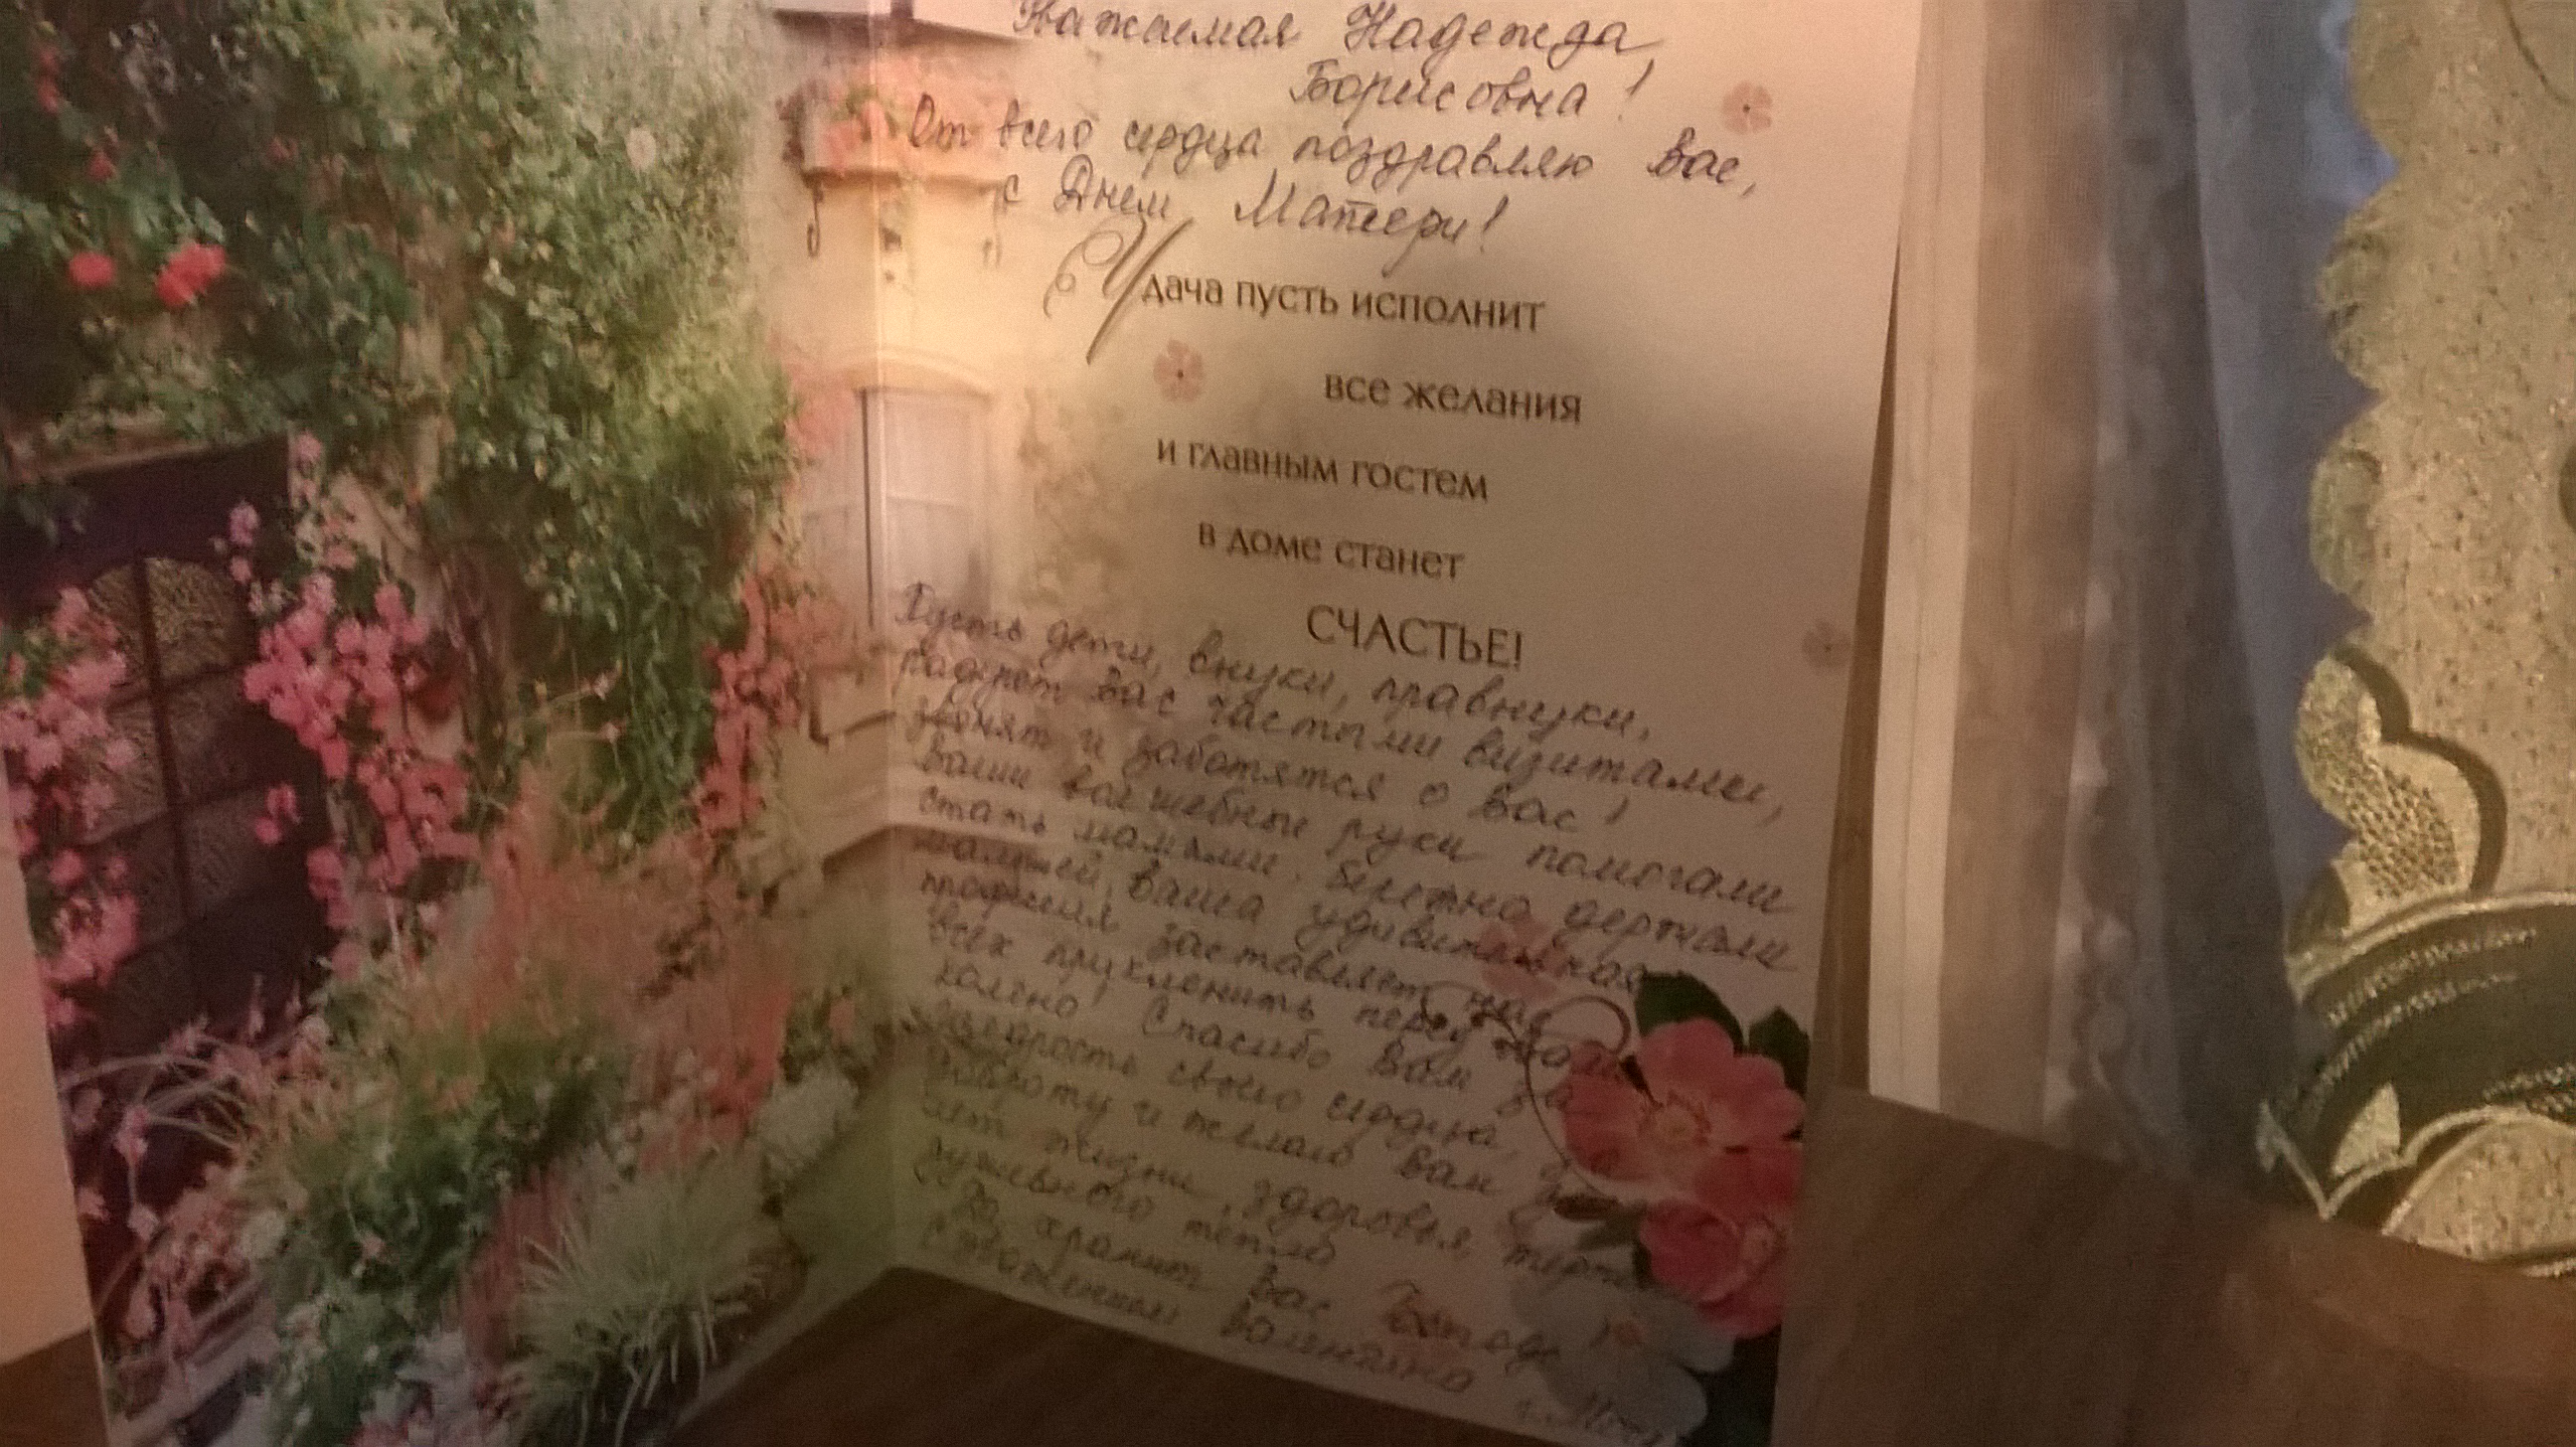 Уважаемая Надежда
Борисовна!
От всего сердца поздравляю Вас,
с Днем Матери!
Удача пусть исполнит
все желания
и главным гостем
в доме станет
СЧАСТЬЕ!
Пусть дети, внуки, правнуки,
радуют Вас частыми визитами,
звонят и заботятся о Вас!
Ваши волшебные руки помогали
стать мамами, бережно держали
малышей, ваша удивительная
заставляет нас
всех приклонить перед Вами
колено! Спасибо Вам за
щедрость своего сердца, за
доброту и желаю Вам
лет жизни, здоровья,
душевного тепла
Да хранит Вас Господь!
С уважением Валентина